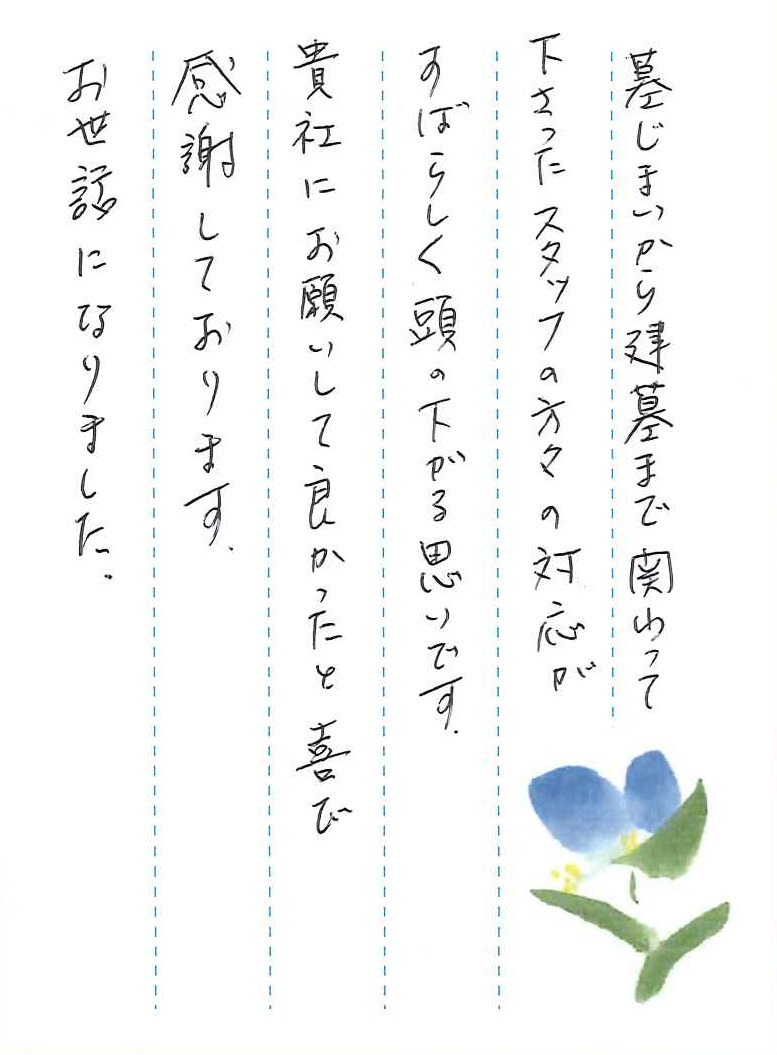 墓じまいから建墓まで関わって
下さったスタッフの方々の対応が
すばらしく頭の下がる思いです.
貴社にお願いして良かったと喜び
感謝しております.
お世話になりました.